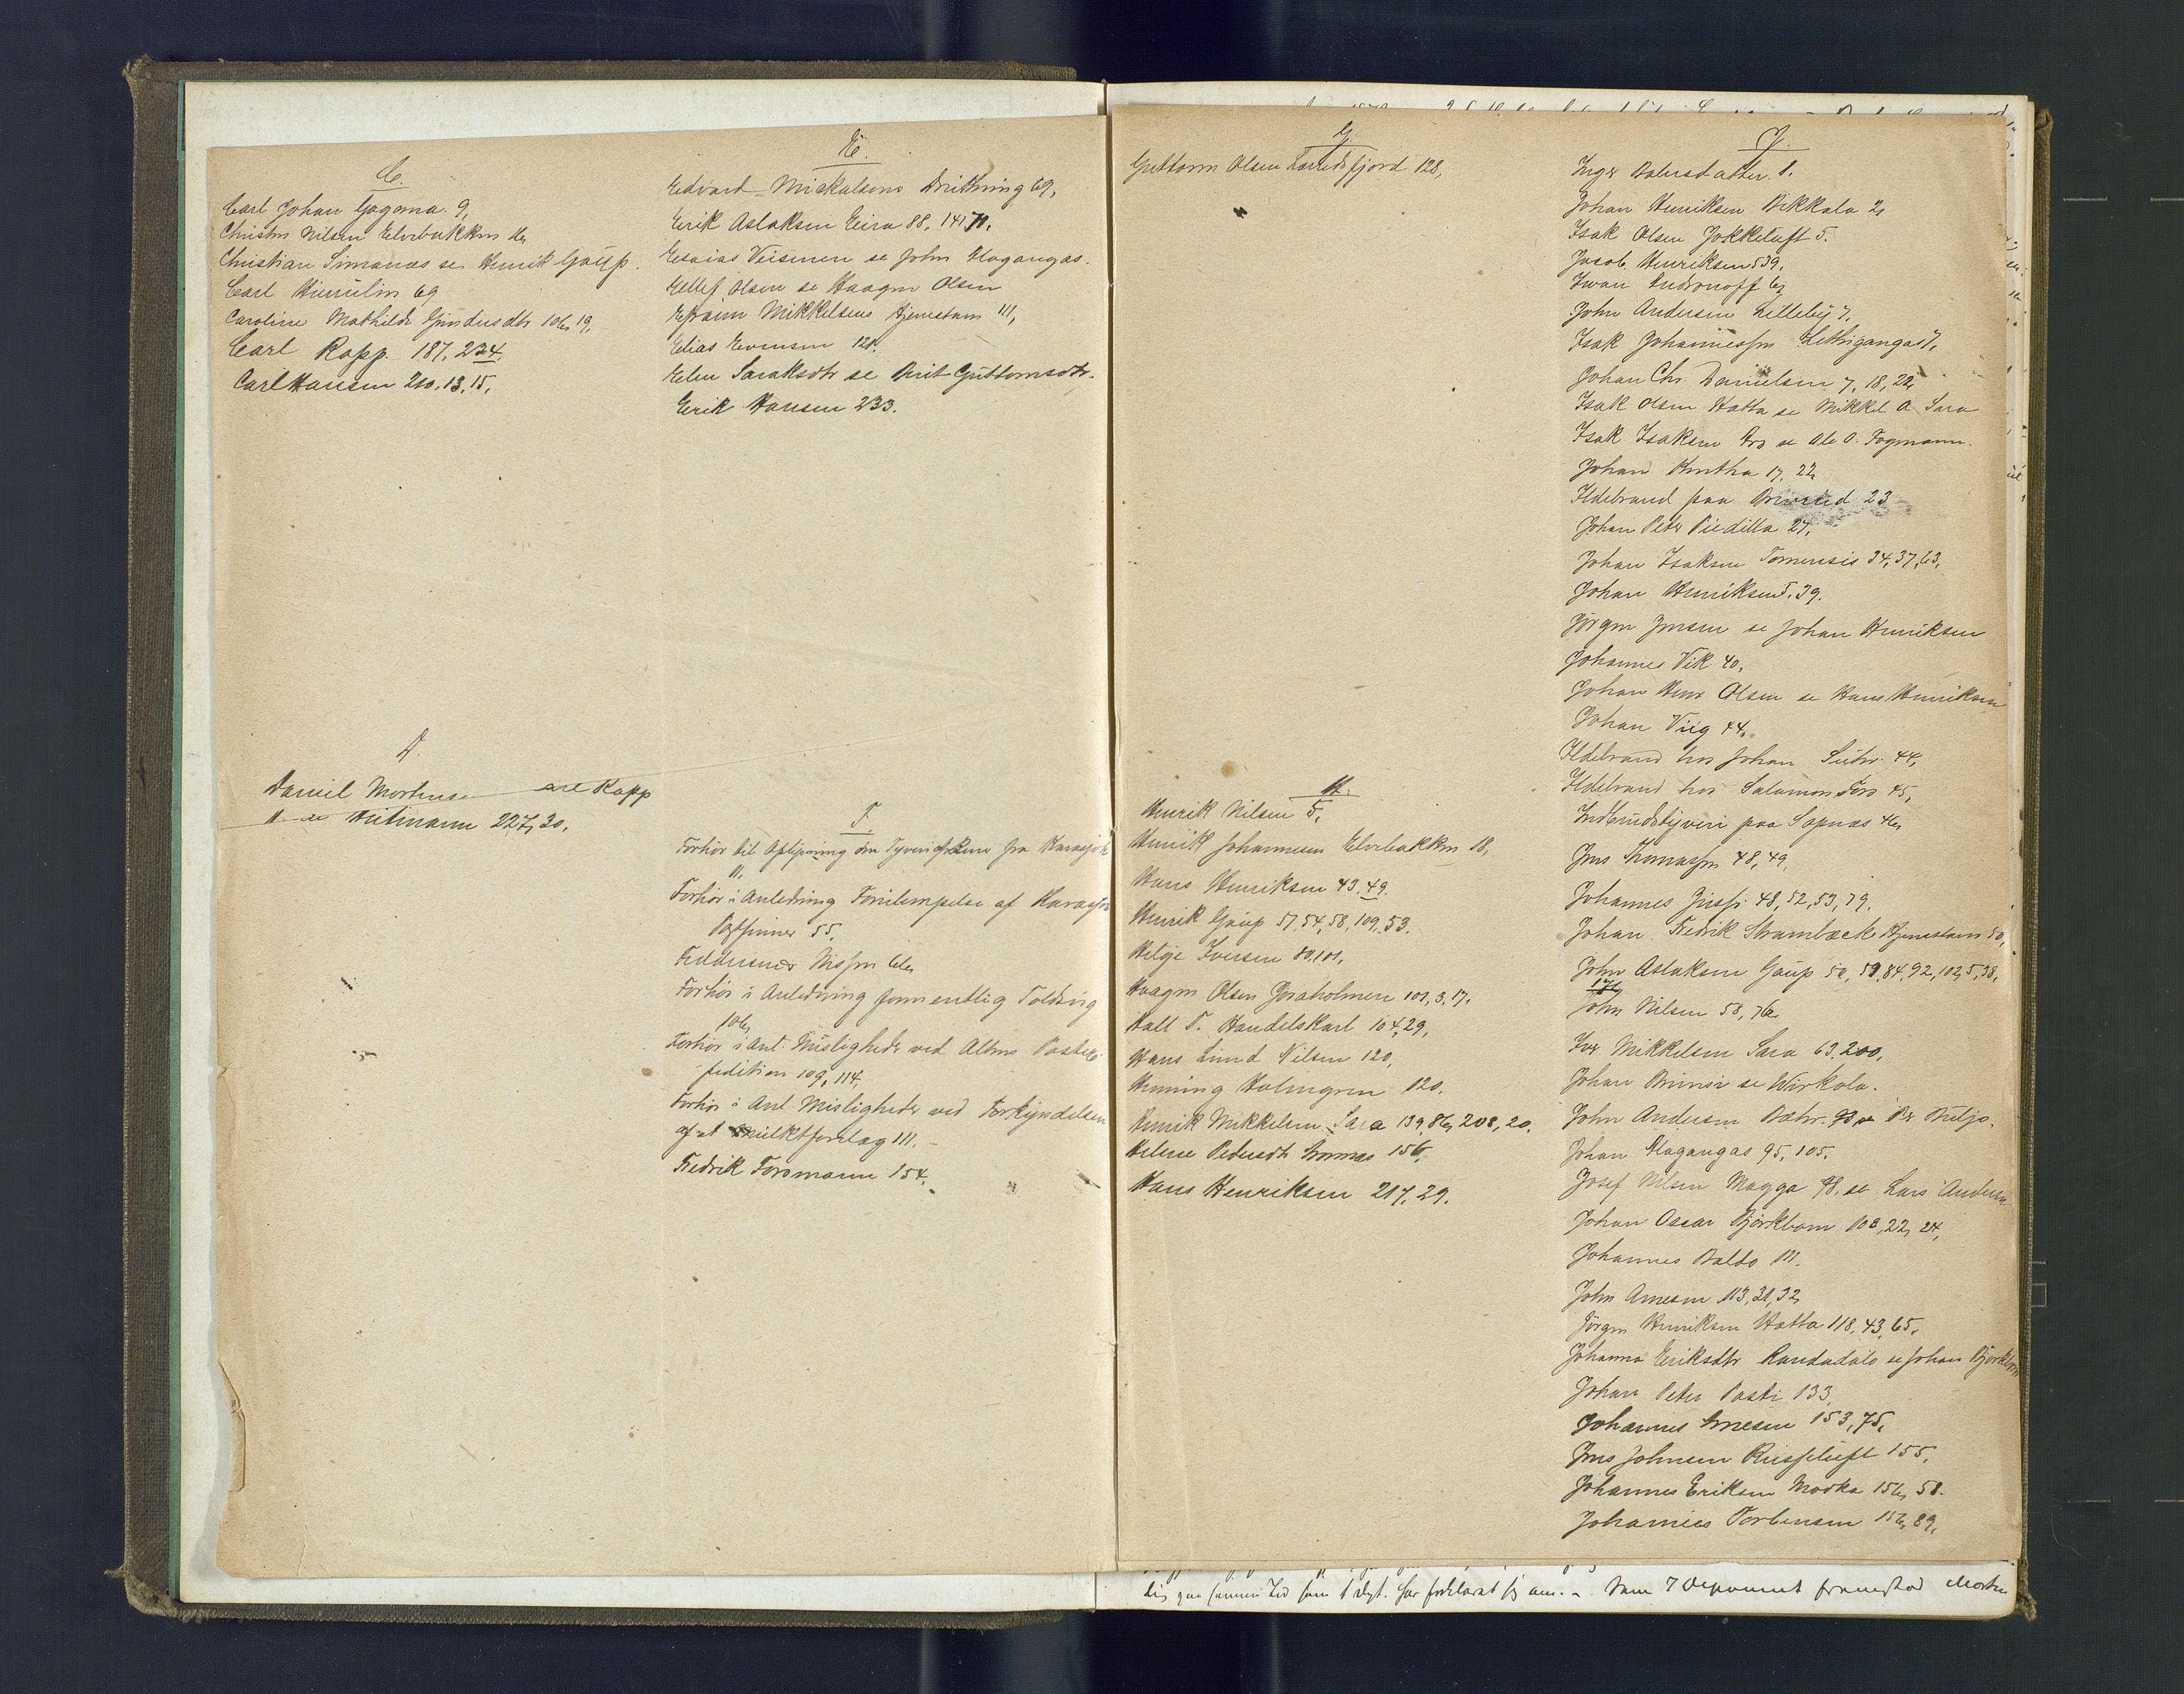 C.
Carl Johan Gagama. 9,
Christen Nilsen Elvebakken 16,
Christian Simanæs se Henrik Gaup.
Carl 69
Caroline Mathilde 106, 19,
Carl Rapp. 187, 234.
Carl Hansen 210, 13, 15,
D.
Daniel Mortensen Carl Rapp
Hutmann 227, 30,
E.
Edvard Mickalsens Dritkning 69,
Erik Aslaksen Eira 88, 141, 71,
Esaias Veisenen se John Hagangas.
Ellef Olsen se Haagen Olsen
Efraim Mikkelsens Hjemstavn 111,
Elias Evensen 121.
Elen Saraksdtr se Berit Guttormsdtr.
Erik Hansen 233.
F.
Forhør til Oplysning om Tyveri af Ren fra Karasjok
11,
Forhør i Anledning Forulempelse af Karasjok
Postfinner 55,
Nissen 66,
Forhør i Anledning formentlig Toldsvig
106,
Forhør i Anl. Misligheder ved Altens Postex-
pedition 109, 114,
Forhør i Anl Misligheder ved Forkyndelsen
af et Mulktforelæg 111.
Fredrik Forsmann 154,
G.
Guttorm Olsen Kortedsfjord 128,
H.
Henrik Nilsen 5,
Henrik Johannesen Elvebakken 18,
Hans Henriksen 43, 49.
Henrik Gaup 51, 54, 58, 109, 53.
Helge Iversen 80, 101,
Haagen Olsen Goraholmen 101, 3, 17.
Hall P. Handelskarl 104, 29,
Hans Lund Nilsen 120,
Henning Holmgren 120.
Henrik Mikkelsen Sara 139, 86, 208, 20.
Helene Pedersdtr 156,
Hans Henriksen 217, 29.
J.
Inger Balersdatter 1.
Johan Henriksen Bikkala 2,
Isak Olsen Jokkeluft 5.
Jacob Henriksen 5 39,
Iwan Andronoff 6,
John Andersen Lilleby 7,
Isak Johannessen 7,
Johan Chr. Danielsen 7, 18, 22,
Isak Olsen Hætta se Mikkel A Sara
Isak Isaksen se Ole O. Fogmann.
Johan 17, 22,
Ildebrand paa 23
Johan Peter Piedilla 27,
Johan Isaksen Tornensis 34, 37, 63,
Johan Henriksen 5. 39.
Jørgen Jensen se Johan Henriksen
Johannes Vik 40,
Johan Henr Olsen se Hans Henriksen
Johan Viig 44,
Ildebrand hos Johan Suhr 44,
Ildebrand hos Salamon Fors 45,
Indbrudstyveri paa Sopnæs 46,
Jens Thomassen 48, 49,
Johannes 48, 52, 53, 79.
Johan Fredrik Strømbæcks Hjemstavn 50,
John Aslaksen Gaup 52, 59, 84, 92, 102, 5, 38,
176
John Nilsen 58, 76
Iver Mikkelsen Sara 63, 200,
Johan se Wirkola.
John Andersen Bæhr se Per
Johan Hagangas 95, 105.
Josef Nilsen Magga 98, se Lars Andersen
Johan Oscar Bjørkbom 108, 22, 24,
Johannes Balto 111.
John Arnesen 113, 31, 32,
Jørgen Henriksen Hætta 118, 43, 65,
Johanna Eriksdtr Randadalo se Johan Bjørkbom
Johan Peter Posti 133,
Johannes Arnesen 153, 75,
Jens Johnsen Russeluft 155,
Johannes Eriksen Mooka 156, 58.
Johannes Torbensen 156, 89,